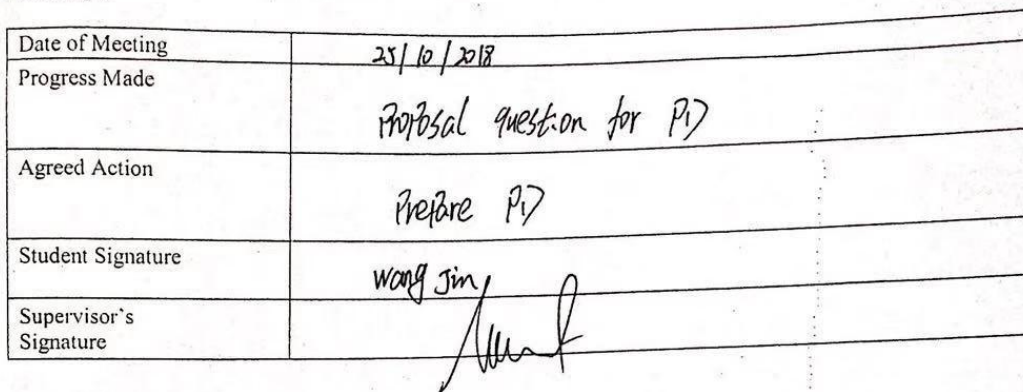 Date of Meeting 25/10/2018
Progress Made
Proposal question for PD
Agreed Action
Prepare PD
Student Signature
Wang Jin
Supervisor`s
Signature